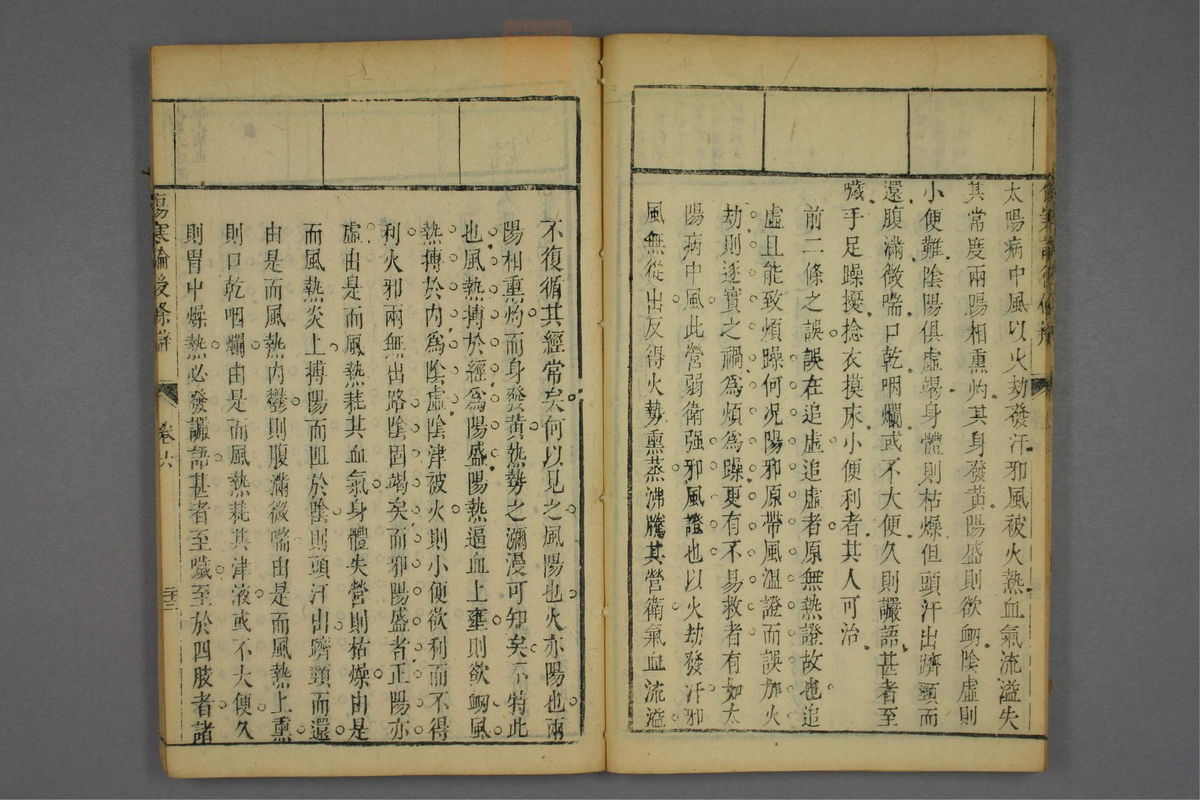 太陽病中風以火劫發汗邪風被火熱血氣流溢失
其常度兩陽相熏灼其身發黃陽盛則欲衂陰虛則
小便難陰陽俱虛竭身體則枯燥但頭汗出躋頸而
還腹滿微喘口乾咽爛或不大便久則讝語甚者至
噦手足躁擾捻衣摸床小便利者其人可治
前二條之誤誤在追虛追虛者原無熱證故也追
虛且能致煩躁何况陽邪原帶風溫證而誤加火
劫則逐實之禍爲煩爲躁更有不易救者有如太
陽病中風此營弱衛强邪風證也以火劫發汗邪
風無從出反得火勢熏蒸沸騰其營衛氣血流溢
不復循其經常矣何以見之風陽也火亦陽也兩
陽相熏灼而身發黃熱勢之瀰漫可知矣不特此
也風熱搏於經爲陽盛陽熱逼血上壅則欲衂風
熱搏於內爲陰虛陰津被火則小便欲利而不得
利火邪兩無出路陰固竭矣而邪陽盛者正陽亦
虛由是而風熱耗其血氣身體失營則枯燥由是
而風熱炎上搏陽而阻於陰則頭汗出躋頸而還
由是而風熱內鬱則腹滿微喘由是而風熱上熏
則口乾咽爛由是而風熱耗其津液或不大便久
則胃中燥熱必發讝語甚者至噦至於四肢者諸
傷寒論後條辯
卷六